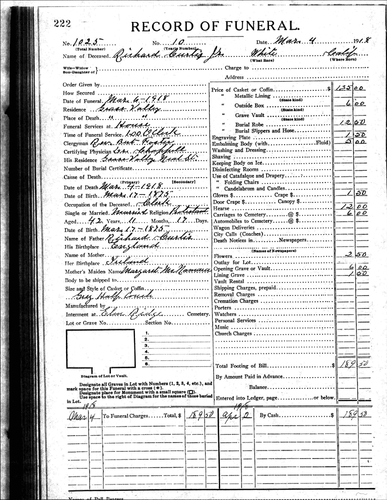 222
RECORD OF FUNERAL.
No. 1025 No. 10 Date, Mar 4 1918
(Total Number) (Yearly Number)
Name of Deceased, Richard Curtis Jr. White
(What Race) (Where Born)
Wife-Widow
Son-Daughter of
Charge to
Address
Order Given by
How Secured
Date of Funeral, Mar 6-1918
Residence, Grass Valley
Place of Death, " "
Funeral Services at House
Time of Funeral Service, 1:30 O'Clock
Clergyman, Rev. Burt Foster
Certifying Physician
His Residence, Grass Valley
Number of Burial Certificate
Cause of Death
(Primary) (Secondary)
Date of Death, Mar-4-1918
Date of Birth, Mar-17-1875
Occupation of the Deceased, Clerk
Single or Married, Married Religion
Aged, 42 Years, 11 Months, 17 Days
Date of Birth, Mar-17-1875
Name of Father, Richard Curtis
His Birthplace, England
Name of Mother
Her Birthplace, Ireland
Mother's Maiden Name, Margaret McNamara
Body to be shipped to
Size and Style of Casket or Coffin
Grey Half Couch
Manufactured by
Interment at Elm Ridge Cemetery.
Lot or Grave No. Section No.
1
2
3
4
5
6
Diagram of Lot or Vault.
Designate all Graves in Lot with Numbers (1, 2, 3, 4, etc.), and
mark space for this Funeral with a cross (✱).
Designate place for Monument with a small square (☐).
Use space to the right of Diagram for the names of those buried
in Lot.
Price of Casket or Coffin 135 00
" Metallic Lining
(State kind)
" Outside Box 6 00
(State kind)
" Grave Vault
(State kind)
" Burial Robe 12 50
" Burial Slippers and Hose
Engraving Plate 1 50
Embalming Body (with Fluid) 5 00
Washing and Dressing
Shaving
Keeping Body on Ice
Disinfecting Rooms
Use of Catafalque and Drapery
" Folding Chairs
" Candelabrum and Candles
Gloves $ Crape $ 1 50
Door Crape $ Canopy $
Hearse 12 00
Carriages to Cemetery @ $ 6 00
Automobiles to Cemetery @ $
Wagon Deliveries
City Calls (Coaches)
Death Notices in Newspapers
(Names of Newspapers)
Flowers 2 50
Outlay for Lot
Opening Grave or Vault 6 00
Lining Grave 1 00
Vault Rental
Shipping Charges, prepaid
Removal Charges
Cremation Charges
Porters
Watchers
Personal Services
Music
Church Charges
Total Footing of Bill $ 189 50
By Amount Paid in Advance
Balance
Entered into Ledger, page or below.
1918 1918
Mar 4 To Funeral Charges Total, $ 189 50 Apr 2 By Cash $ 189 50